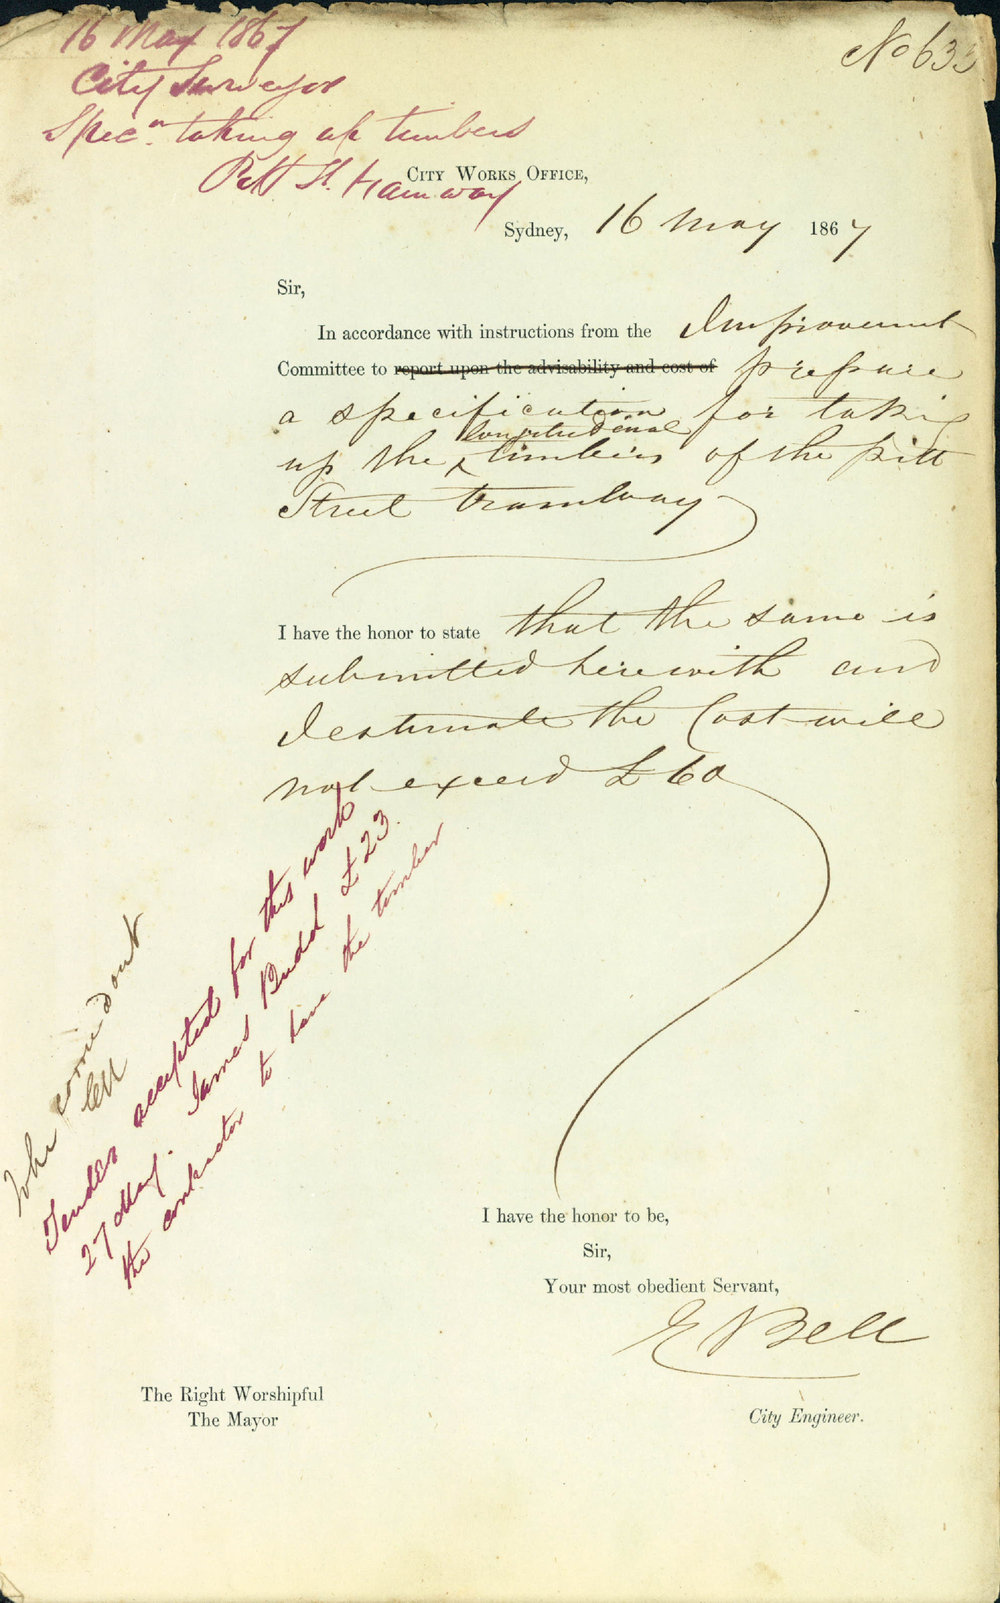 16 May 1867
City Surveyor
Specn. taking up timbers
Pitt St. tramway
No 633
CITY WORKS OFFICE,
Sydney, 16 May 1867
Sir,
In accordance with instructions from the Improvement
Committee to report upon the advisability and cost of prepare
a specification for taking
longitudinal
up the ^ timbers of the pitt
Street tramway
I have the honor to state that the same is
submitted herewith and
I estimate the Cost will
not exceed £60
carried out
Bell
Tender accepted for this work
27 May. James Budd £23.
the contractor to have the timber
I have the honor to be,
Sir,
Your most obedient Servant,
E Bell
The Right Worshipful
The Mayor
City Engineer.